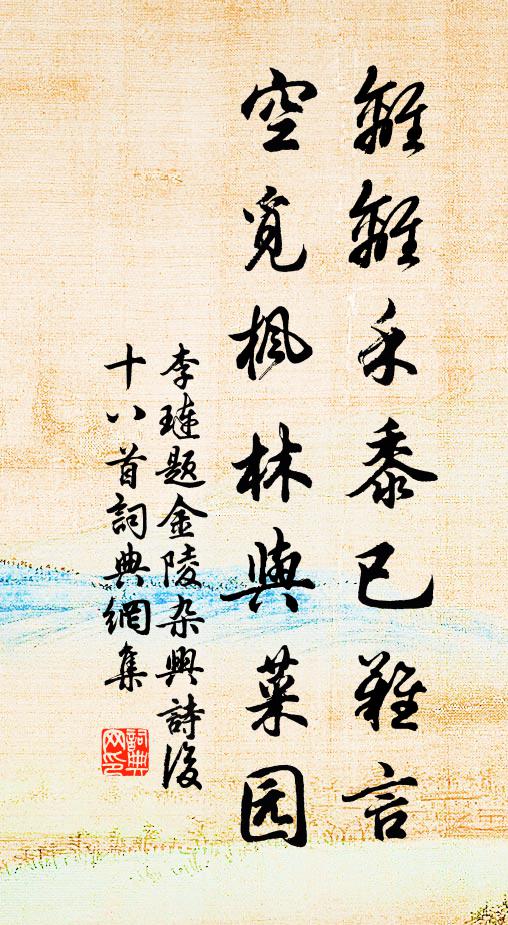 離離禾黍已難言
空覓楓林與菜园
李璉題金陵杂興詩後
十八首詞典網集
詞典网印